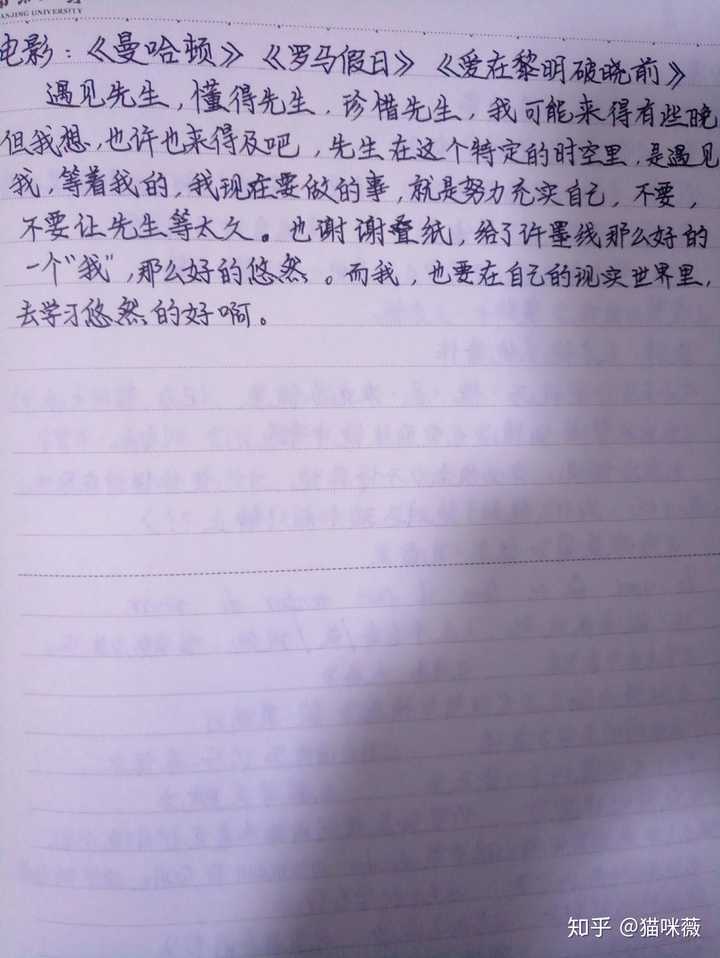 ANJING UNIVERSITY
电影：《曼哈顿》《罗马假日》《爱在黎明破晓前》
遇见先生，懂得先生，珍惜先生，我可能来得有些晚
但我想，也许也来得及吧，先生在这个特定的时空里，是遇见
我，等着我的，我现在要做的事，就是努力充实自己，不要，
不要让先生等太久。也谢谢叠纸，给了许墨线那么好的
一个“我”，那么好的悠然。而我，也要在自己的现实世界里，
去学习悠然的好啊。
知乎 @猫咪薇